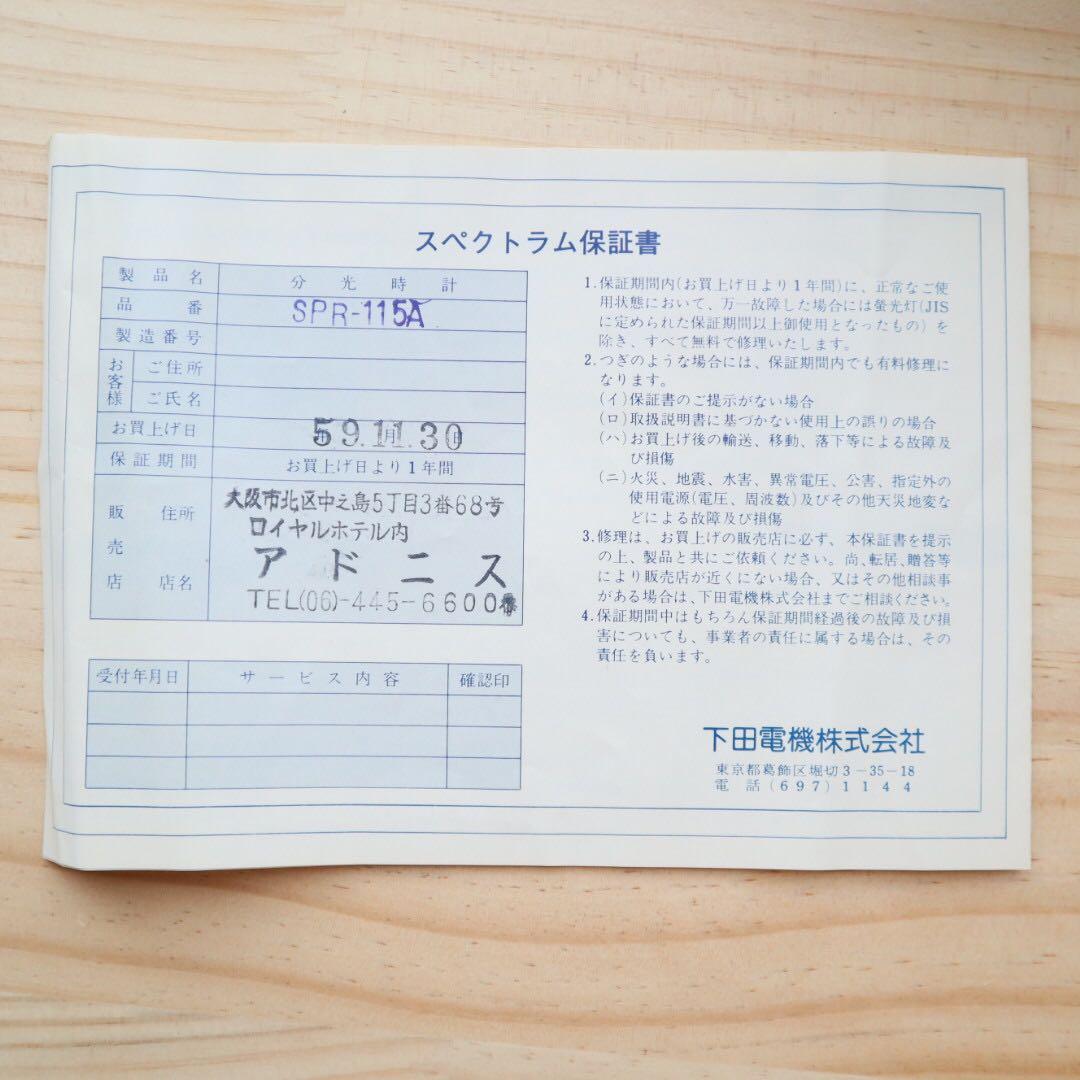 スペクトラム保証書
製品名 分光時計
品番 SPR-115A
製造番号
お客様 ご住所
ご氏名
お買上げ日 59.11.30
保証期間 お買上げ日より1年間
販売店 住所 大阪市北区中之島5丁目3番68号
ロイヤルホテル内
店名 アドニス
TEL(06)-445-6600
受付年月日 サービス内容 確認印
1.保証期間内(お買上げ日より1年間)に、正常なご使
用状態において、万一故障した場合には螢光灯(JIS
に定められた保証期間以上御使用となったもの)を
除き、すべて無料で修理いたします。
2.つぎのような場合には、保証期間内でも有料修理に
なります。
(イ)保証書のご提示がない場合
(ロ)取扱説明書に基づかない使用上の誤りの場合
(ハ)お買上げ後の輸送、移動、落下等による故障及
び損傷
(ニ)火災、地震、水害、異常電圧、公害、指定外の
使用電源(電圧、周波数)及びその他天災地変な
どによる故障及び損傷
3.修理は、お買上げの販売店に必ず、本保証書を提示
の上、製品と共にご依頼ください。尚、転居、贈答等
により販売店が近くにない場合、又はその他相談事
がある場合は、下田電機株式会社までご相談ください。
4.保証期間中はもちろん保証期間経過後の故障及び損
害についても、事業者の責任に属する場合は、その
責任を負います。
下田電機株式会社
東京都葛飾区堀切3-35-18
電話(697)1144